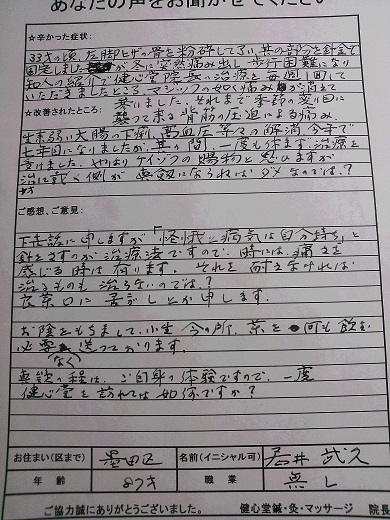 あなたの声をお聞かせください
☆辛かった症状：
33才の頃、左脚ヒザの骨を粉砕してしまい、其の部分を針金で
固定しましたが冬に突然痛み出し歩行困難になり
知人の紹介で健心堂院長の治療を毎週1回して
いただきましたところ、マジックの如く痛みが消えて
☆改善されたところ：
襲って来る背筋の圧迫による痛み、
生来弱い大腸の下痢、高血圧等々の解消、今年で
十年目になりましたが、其の間、一度も休まず治療を
受けました。やはりケイゾクの賜物と思ひますが
治して戴く側が真剣になられねばダメなのでは、？
ご感想、ご意見：
下世話に申しますが「怪我と病気は自分持ち」と
針をさすのが治療法ですので、時には、痛さを
感じる時は有ります。それを耐えなければ
治るものも治らないのでは？
良薬口に苦がしとか申します。
お陰をもちまして、小生 今の所、薬を 何も飲む
必要なく送っております。
真談の程は、ご自身の体験ですので、一度
健心堂を訪れては如何ですか？
お住まい（区まで） 墨田区 名前（イニシャル可） 石井 武久
年齢 職業 無し
ご協力誠にありがとうございました。 健心堂鍼・灸・マッサージ 院長